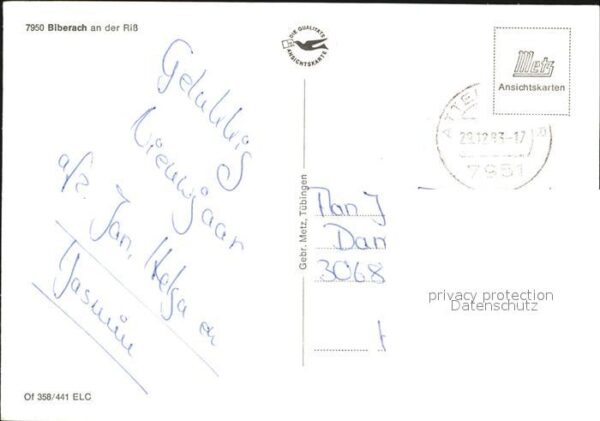 7950 Biberach an der Riß
DIE QUALITÄTS
ANSICHTSKARTE
Metz
Ansichtskarten
29.12.83-17
7951
Gelukkig
Nieuwjaar
afz. Jan, Helga en
Jasmin
Gebr. Metz, Tübingen
Dan
3068
privacy protection
Datenschutz
Of 358/441 ELC